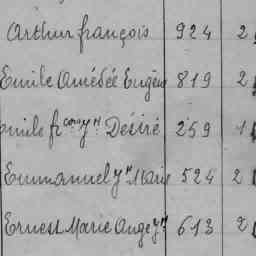 Arthur françois 924 2
Emile Amédée Eugène 819 2
Emile fr.çois Jn Désiré 259 1
Emmanuel Jn Marie 524 2
Ernest Marie Ange Jn 613 2